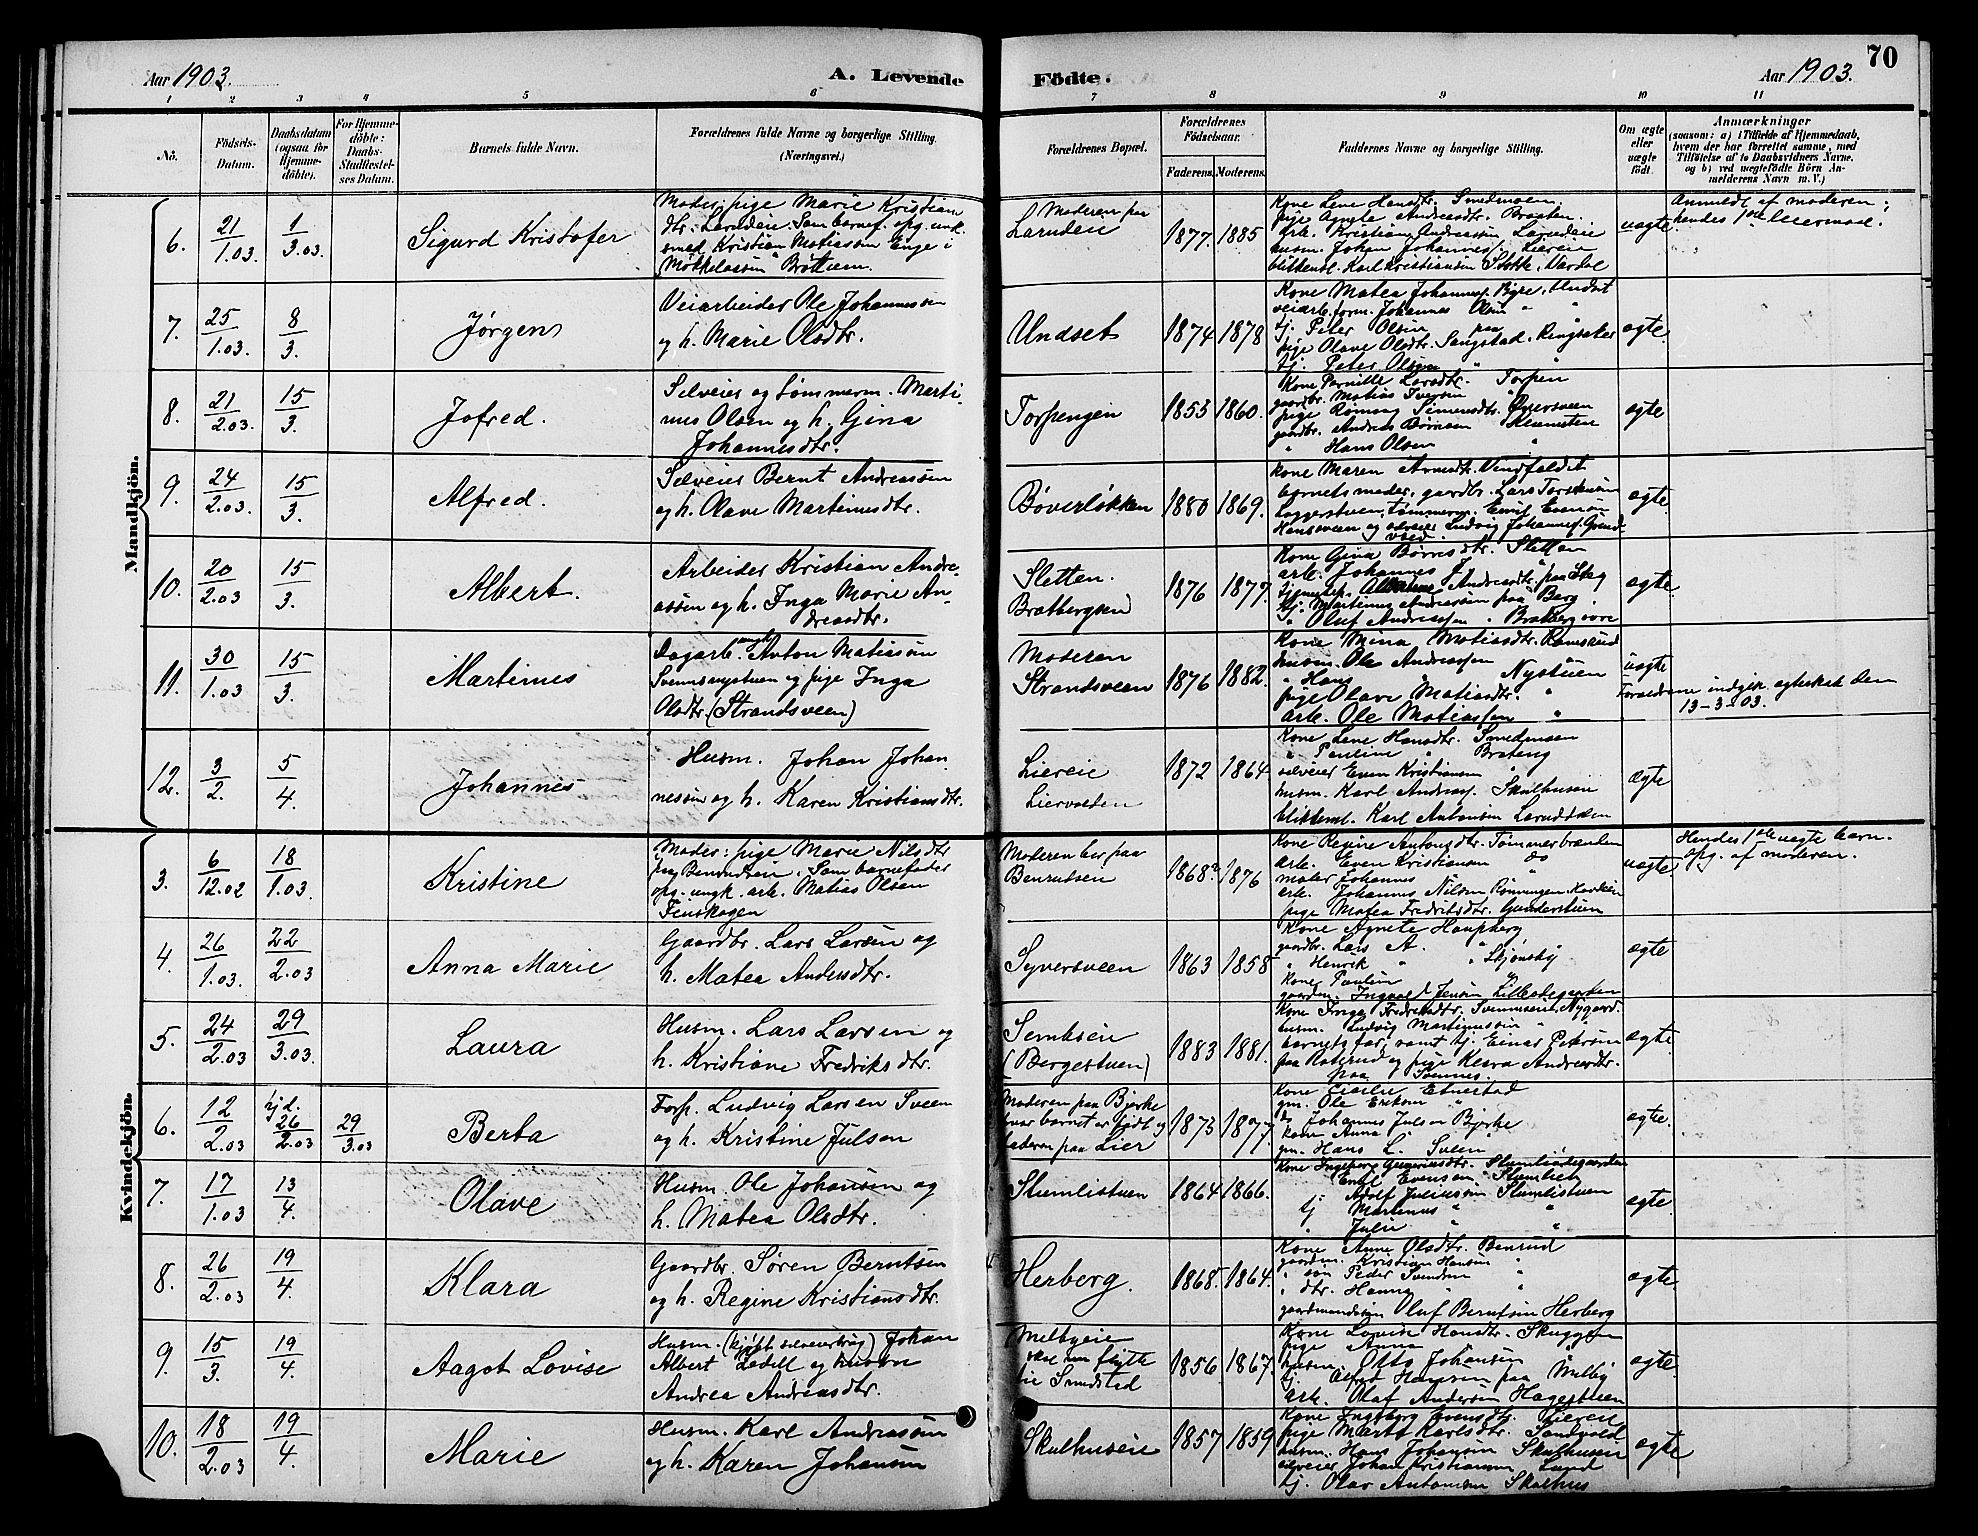 Aar 1903.
A. Levende
Födte.
Aar 1903.
70
1 2 3 4 5 6 7 8 9 10 11
No.
Födsels-
Datum.
Daabsdatum
(ogsaa for
Hjemme-
döbte).
For Hjemme-
döbte:
Daabs-
Stadfæstel-
ses Datum.
Barnets fulde Navn.
Forældrenes fulde Navne og borgerlige Stilling.
(Næringsvei.)
Forældrenes Bopæl.
Forældrenes
Födselsaar.
Faderens. Moderens.
Faddernes Navne og borgerlige Stilling.
Om ægte
eller
uægte
födt.
Anmærkninger
(saasom: a) i Tilfælde af Hjemmedaab,
hvem der har forrettet samme, med
Tilföielse af to Daabsvidners Navne,
og b) ved uægtefödte Börn An-
melderens Navn m. V.)
Mandkjön.
6.
21/1.03.
1/3.03.
Sigurd Kristofer
Moder: pige Marie Kristian
dtr. Larudeie. Som barnef. opg. unk.
smed Kristian Matiassen Enge i
Brøttum.
Moderen paa
Larudeie
1877. 1885
Kone Lene Hansdtr. Smedmoen
pige Agnete Andreasdtr. Braaten.
arb. Kristian Andreassen Larudeie
husm. Johan Johannes/. Liereie
blikkensl. Karl Kristiansen Stokke, Vardal
uægte
Anmeldt af moderen;
hendes 1ste leiermaal.
7.
25/1.03.
8/3.
Jørgen
Veiarbeider Ole Johannessen
og h. Marie Olsdtr.
Undset
1874 1878
Kone Matea Johannesf. Bjge, Undset
veiarb.form. Johannes Olsen "
tj. Peter Olsen paa "
pige Olave Olsdtr. Sangstad, Ringsaker
tj. Peter Olsen "
ægte
8.
21/2.03.
15/3.
Jofred.
Selveier og tømmerm. Marti-
nus Olsen og h. Gina
Johannesdtr.
Torpengen
1853 1860.
Kone Pernille Larsdtr. Torpen
gaardbr. Matias Iversen "
pige Rønnaug Simensdtr. Syversveen
gaardbr. Andreas Børresen
" Hans Olsen "
ægte
9.
24/2.03.
15/3.
Alfred.
Selveier Bernt Andreassen
og h. Olave Martinusdtr.
Bøverløkken
1880 1869.
Kone Maren Arnesdtr. Vindfaldet
barnets moder, gaardbr. Lars Torstensen
tømmerm. Emil Evensen
Hansveen og selveier Ludvig Johannesf. Grend-
ægte
10.
20/2.03
15/3.
Albert.
Arbeider Kristian Andre-
assen og h. Inga Marie An-
dreasdtr.
Sletten.
Bratbergsen)
1876 1877.
Kone Gina Børresdtr. Sletten
arb. Johannes J. "
Andreasdtr. paa Skog
tj. Martinus Andreassen paa Berg
" Oluf Andreassen " Bratberg øvre
ægte
11.
30/1.03
15/3.
Martinus
Dagarb. ungk. Anton Matiassen
Svennsnystuen og pige Inga
Olsdtr. (Strandsveen)
Moderen
Strandsveen
1876 1882.
Kone Mina Matiasdtr. Ramsrud
husm. Ole Andreassen "
" Hans " Nystuen
pige Olave Matiasdtr. "
arb. Ole Matiassen "
uægte
Forældrene indgik ægteskab den
13-3-03.
12.
3/2.
5/4.
Johannes
Husm. Johan Johan-
nessen og h. Karen Kristiansdtr.
Liereie
Liervolden
1872 1864.
Kone Lene Hansdtr. Smedmoen
" Pauline " Brateng
selveier Even Kristiansen "
husm. Karl Andreasf. Skulhuseie
blikkensl. Karl Antonsen
ægte
Kvindekjön.
3.
6/12.02
18/1.03.
Kristine
Moder: pige Marie Nilsdtr
paa Benrudseie. Som barnefader
opg. ungk. arb. Matias Olsen
Finskogen
Moderen bor paa
Benrudseie
1868? 1876
Kone Regine Antonsdtr. Tømmerbraaten
arb. Even Kristiansen do
maler Johannes "
arb. Johannes Nilsen Rønningen,
pige Matea Fredriksdtr. Gunderstuen
uægte
Hendes 1ste uægte barn.
Opg. af moderen.
4.
26/1.03.
22/2.03
Anna Marie
Gaardbr. Lars Larsen og
h. Matea Andersdtr.
Syversveen
1863 1858.
Kone Agnete Haugsberg
gaardbr. Lars A. "
" Henrik " " Skjønsby
Kone Pauline "
gaardm. Ingvald Jensen Lillehovegaarden
ægte
5.
24/2.03
29/3.03.
Laura
Husm. Lars Larsen og
h. Kristiane Fredriksdtr.
Sembseie
(Bergestuen)
1883 1881.
Kone Inga Fredriksdtr. Nygaard
husm. Ludvig Martinussen " "
barnets far, samt tj. Einar Petersen
paa Roterud og pige Klara Andreasdtr.
paa
ægte
6.
12/2.03
hjd. 26/2.03
29/3.03
Berta
Forp. Ludvig Larsen Sveen
og h. Kristine Julsen
Moderen paa Bjerke
hvor barnet er født og
faderen paa Lier
1873 1877
Kone Cecilie Etnestad
gm. Ole Eriksen "
do Johannes Julsen Bjerke
kone Anna "
gm. Hans L. Sveen
ægte.
7.
17/1.03
13/4.
Olave
Husm. Ole Johansen og
h. Matea Olsdtr.
Stumlistuen
1864 1866.
Kone Ingeborg Gunerinsdtr. Stumliødegaarden
Emil Evensen Stumlieie
Adolf Juliussen Stumlistuen
tj Martinus " "
" Julie " "
ægte.
8.
26/2.03
19/4.
Klara
Gaardbr. Søren Berntsen
og h. Regine Kristiansdtr.
Herberg.
1868. 1864.
Kone Anne Olsdtr. Benrud
gaardm. Kristian Hansen "
" søn Peder Svendsen "
" dtr. Hanna " "
gaardmandssøn Oluf Berntsen Herberg
ægte.
9.
15/3.
19/4.
Aagot Lovise
Husm. (kjøbt selveierbrug) Johan
Albert Ledell og hustru
Andrea Andreasdtr.
Melbyeie
skal nu flytte
til Smedstad
1856. 1867.
Kone Lovise Hansdtr. Skuggen
pige Anna "
husm. Otto Johansen
tj. Alfred Hansen paa Melby
arb. Olaf Andersen Hagestuen
ægte.
10.
18/2.03
19/4.
Marie
Husm. Karl Andreassen
og h. Karen Johansen
Skulhuseie
1857 1859
Kone Ingeborg Evensdtr. Liereie
pige Marte Karlsdtr. Sandvold
husm. Hans Johansen Skulhuseie
selveier Johan Kristiansen Lund
tj. Olav Antonsen Skolhus
ægte